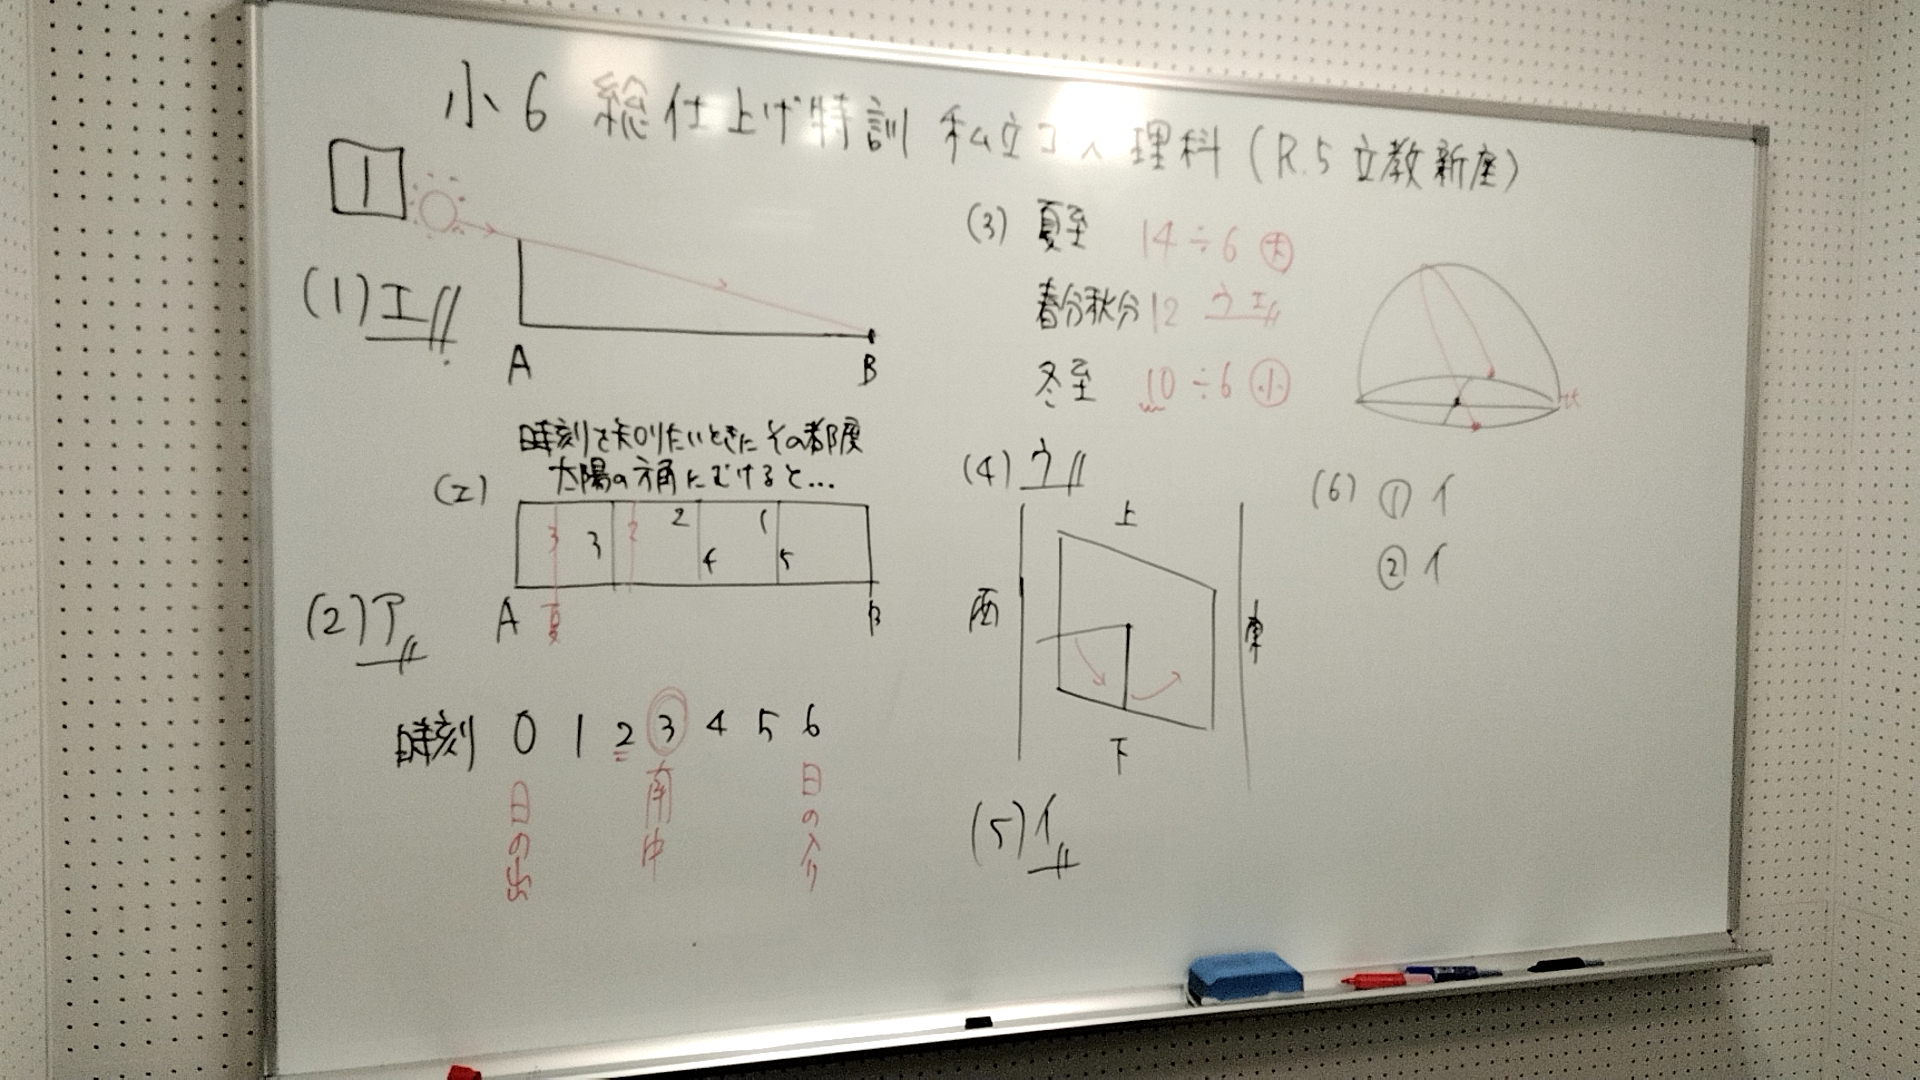 小6 総仕上げ特訓 私立コース 理科 (R.5 立教新座)
1
(1) エ
A B
(2)
時刻を知りたいときに その都度
太陽の方角にむけると…
3 3 2 2 4 1 5
A 夏 B
(2) ア
時刻 0 1 2 3 4 5 6
日の出 南中 日の入り
(3) 夏至 14÷6 大
春分秋分 12 ウエ
冬至 10÷6 小
(4) ウ
上
西 東
下
(5) イ
(6) ① イ
② イ